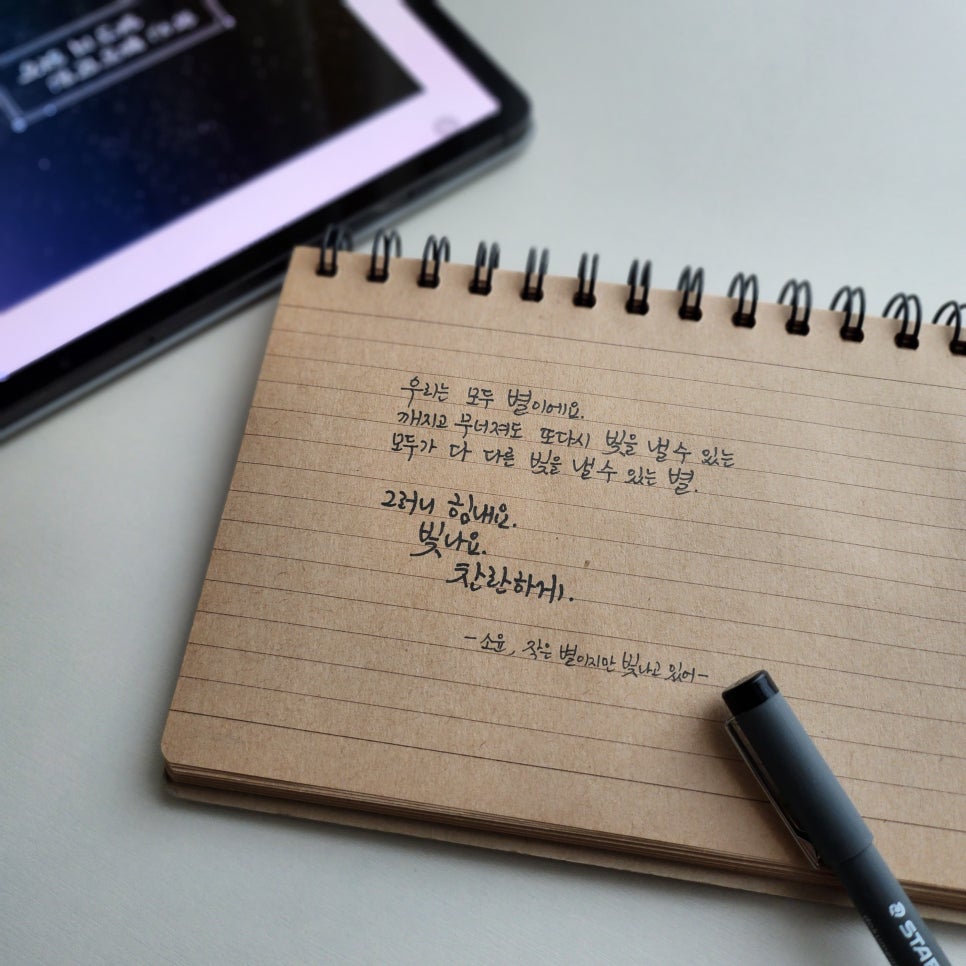 우리는 모두 별이에요.
깨지고 무너져도 또다시 빛을 낼 수 있는
모두가 다 다른 빛을 낼 수 있는 별.
그러니 힘내요.
빛나요.
찬란하게.
-소윤, 작은 별이지만 빛나고 있어-